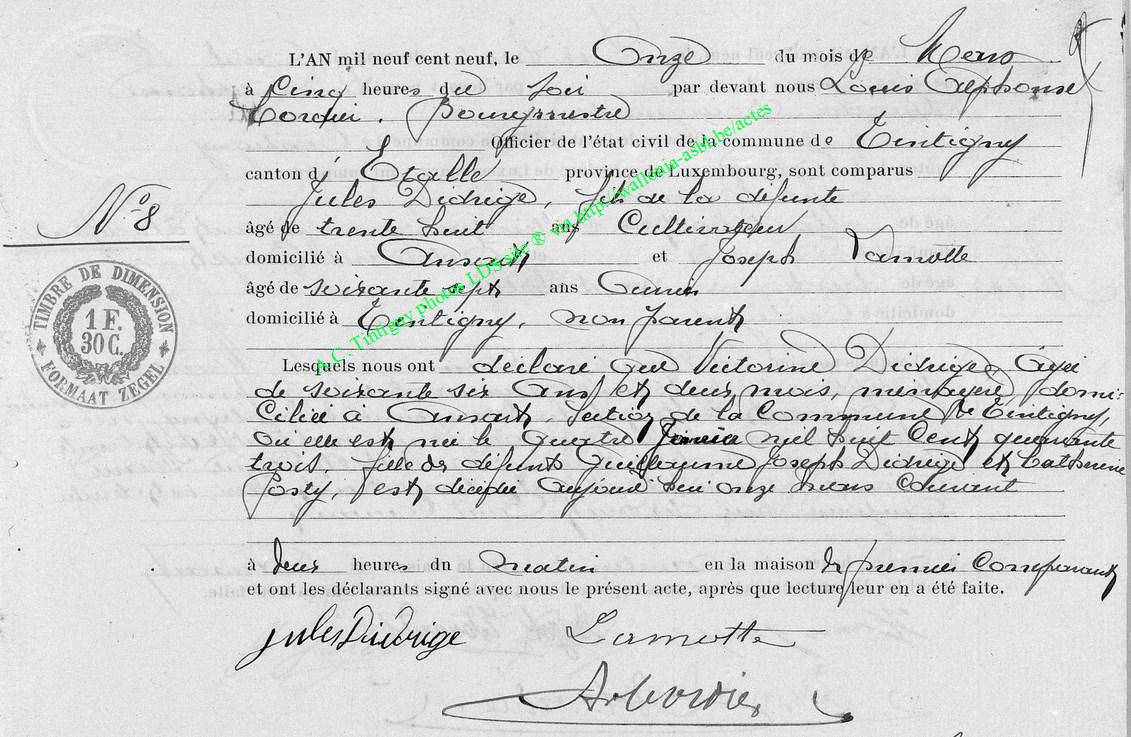 L'AN mil neuf cent neuf, le Onze du mois de Mars
à Cinq heures du soir par devant nous Louis Alphonse
Cordier, Bourgmestre
Officier de l'état civil de la commune de Tintigny
canton d' Etalle province de Luxembourg, sont comparus
Jules Didrige, fils de la défunte
âgé de trente huit ans Cultivateur
domicilié à Ansart et Joseph Lamotte
âgé de soixante sept ans
domicilié à Tintigny, non parents
Lesquels nous ont déclaré que Victorine Didrige, âgée
de soixante six ans et deux mois, ménagère, domi-
ciliée à Ansart, section de la Commune de Tintigny,
où elle est née le quatre Janvier mil huit cent quarante
trois, fille de défunts Guillaume Joseph Didrige et Catherine
Josty, est décédée aujourd'hui onze mars courant
à deux heures du matin en la maison du premier Comparant
et ont les déclarants signé avec nous le présent acte, après que lecture leur en a été faite.
Jules Didrige Lamotte
N° 8
TIMBRE DE DIMENSION
1 F.
30 C.
FORMAAT ZEGEL
A.C. Tintigny photos LDS site ® via http://wallonia-asbl.be/actes